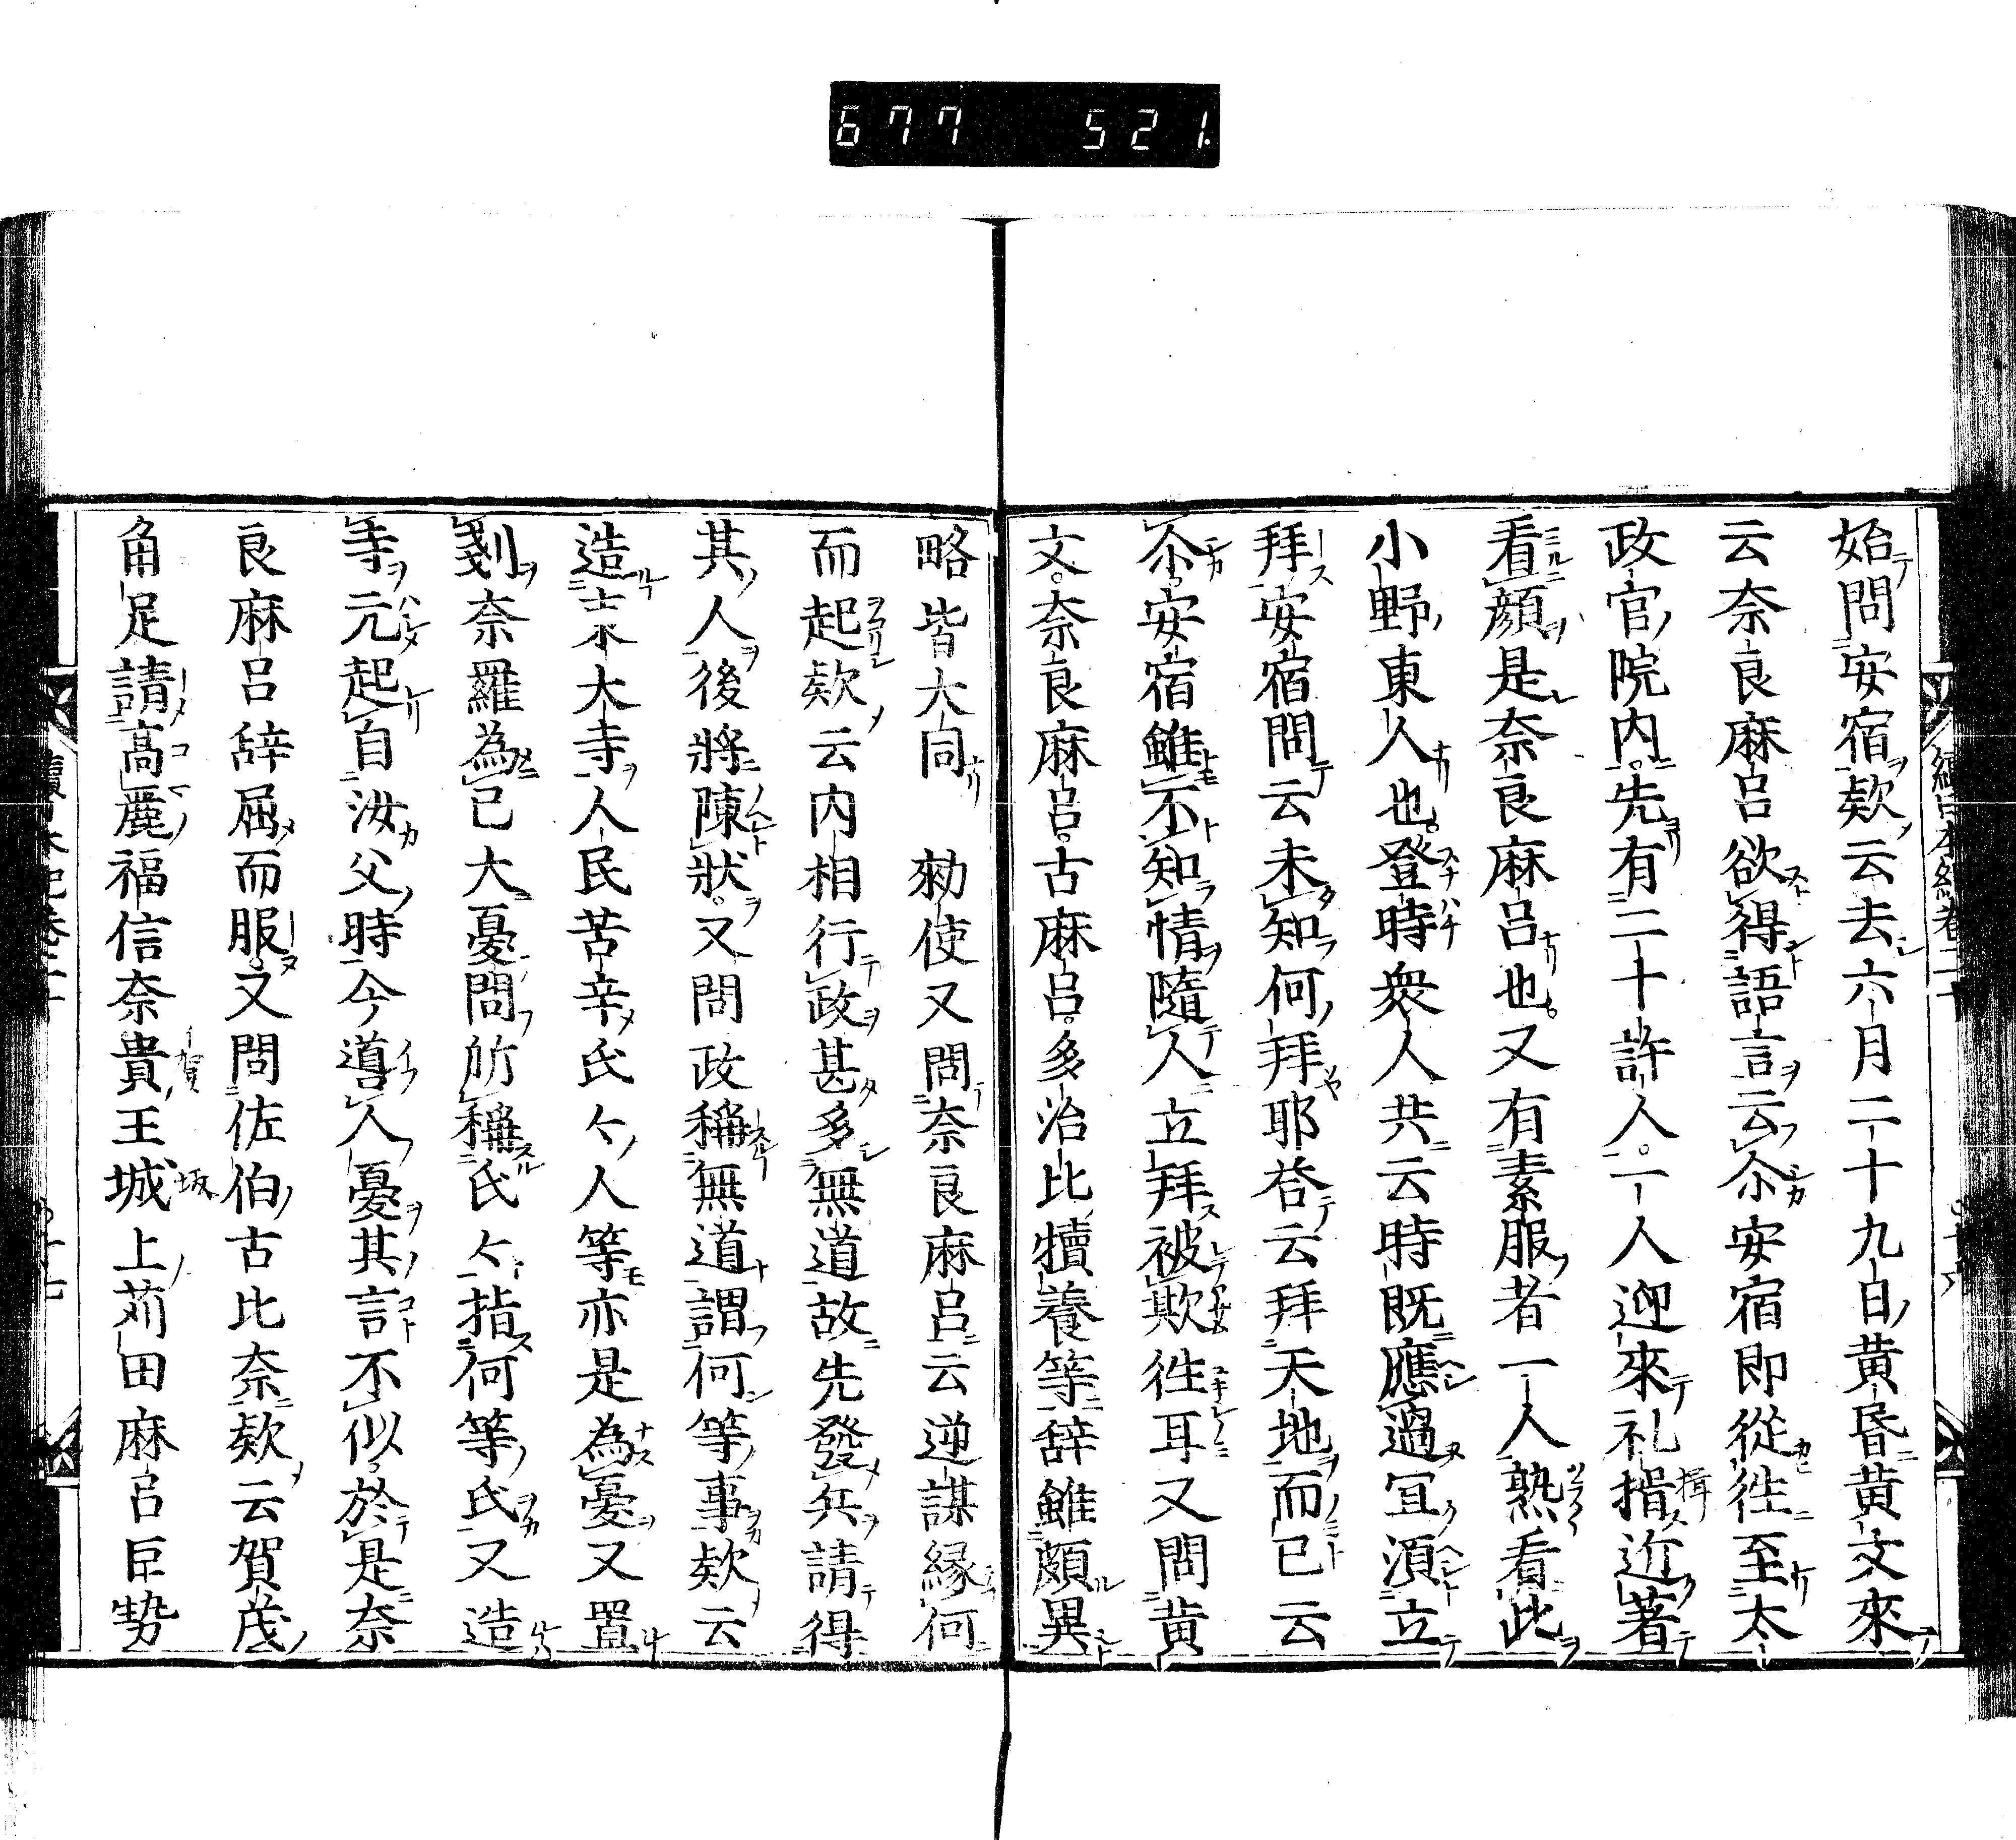 677 521
始問安宿欵云去六月二十九日黄昏黄文來
云奈良麻呂欲得語言云尒安宿即從徃至太
政官院内先有二十許人一人迎來礼揖近著
看顔是奈良麻呂也又有素服者一人熟看此
小野東人也登時衆人共云時既應過冝湏立
拜安宿問云未知何拜耶荅云拜天地而已云
尒安宿雖不知情隨人立拜被欺徃耳又問黄
文奈良麻呂古麻呂多治比犢養等辞雖頗異
略皆大同 勅使又問奈良麻呂云逆謀縁何
而起欵云内相行政甚多無道故先發兵請得
其人後將陳狀又問政稱無道謂何等事欵云
造東大寺人民苦辛氏々人等亦是為憂又置
剗奈羅為已大憂問所稱氏々指何等氏又造
寺元起自汝父時今噵人憂其言不似於是奈
良麻呂辞屈而服又問佐伯古比奈欵云賀茂
角足請高麗福信奈貴王坂上苅田麻呂巨勢